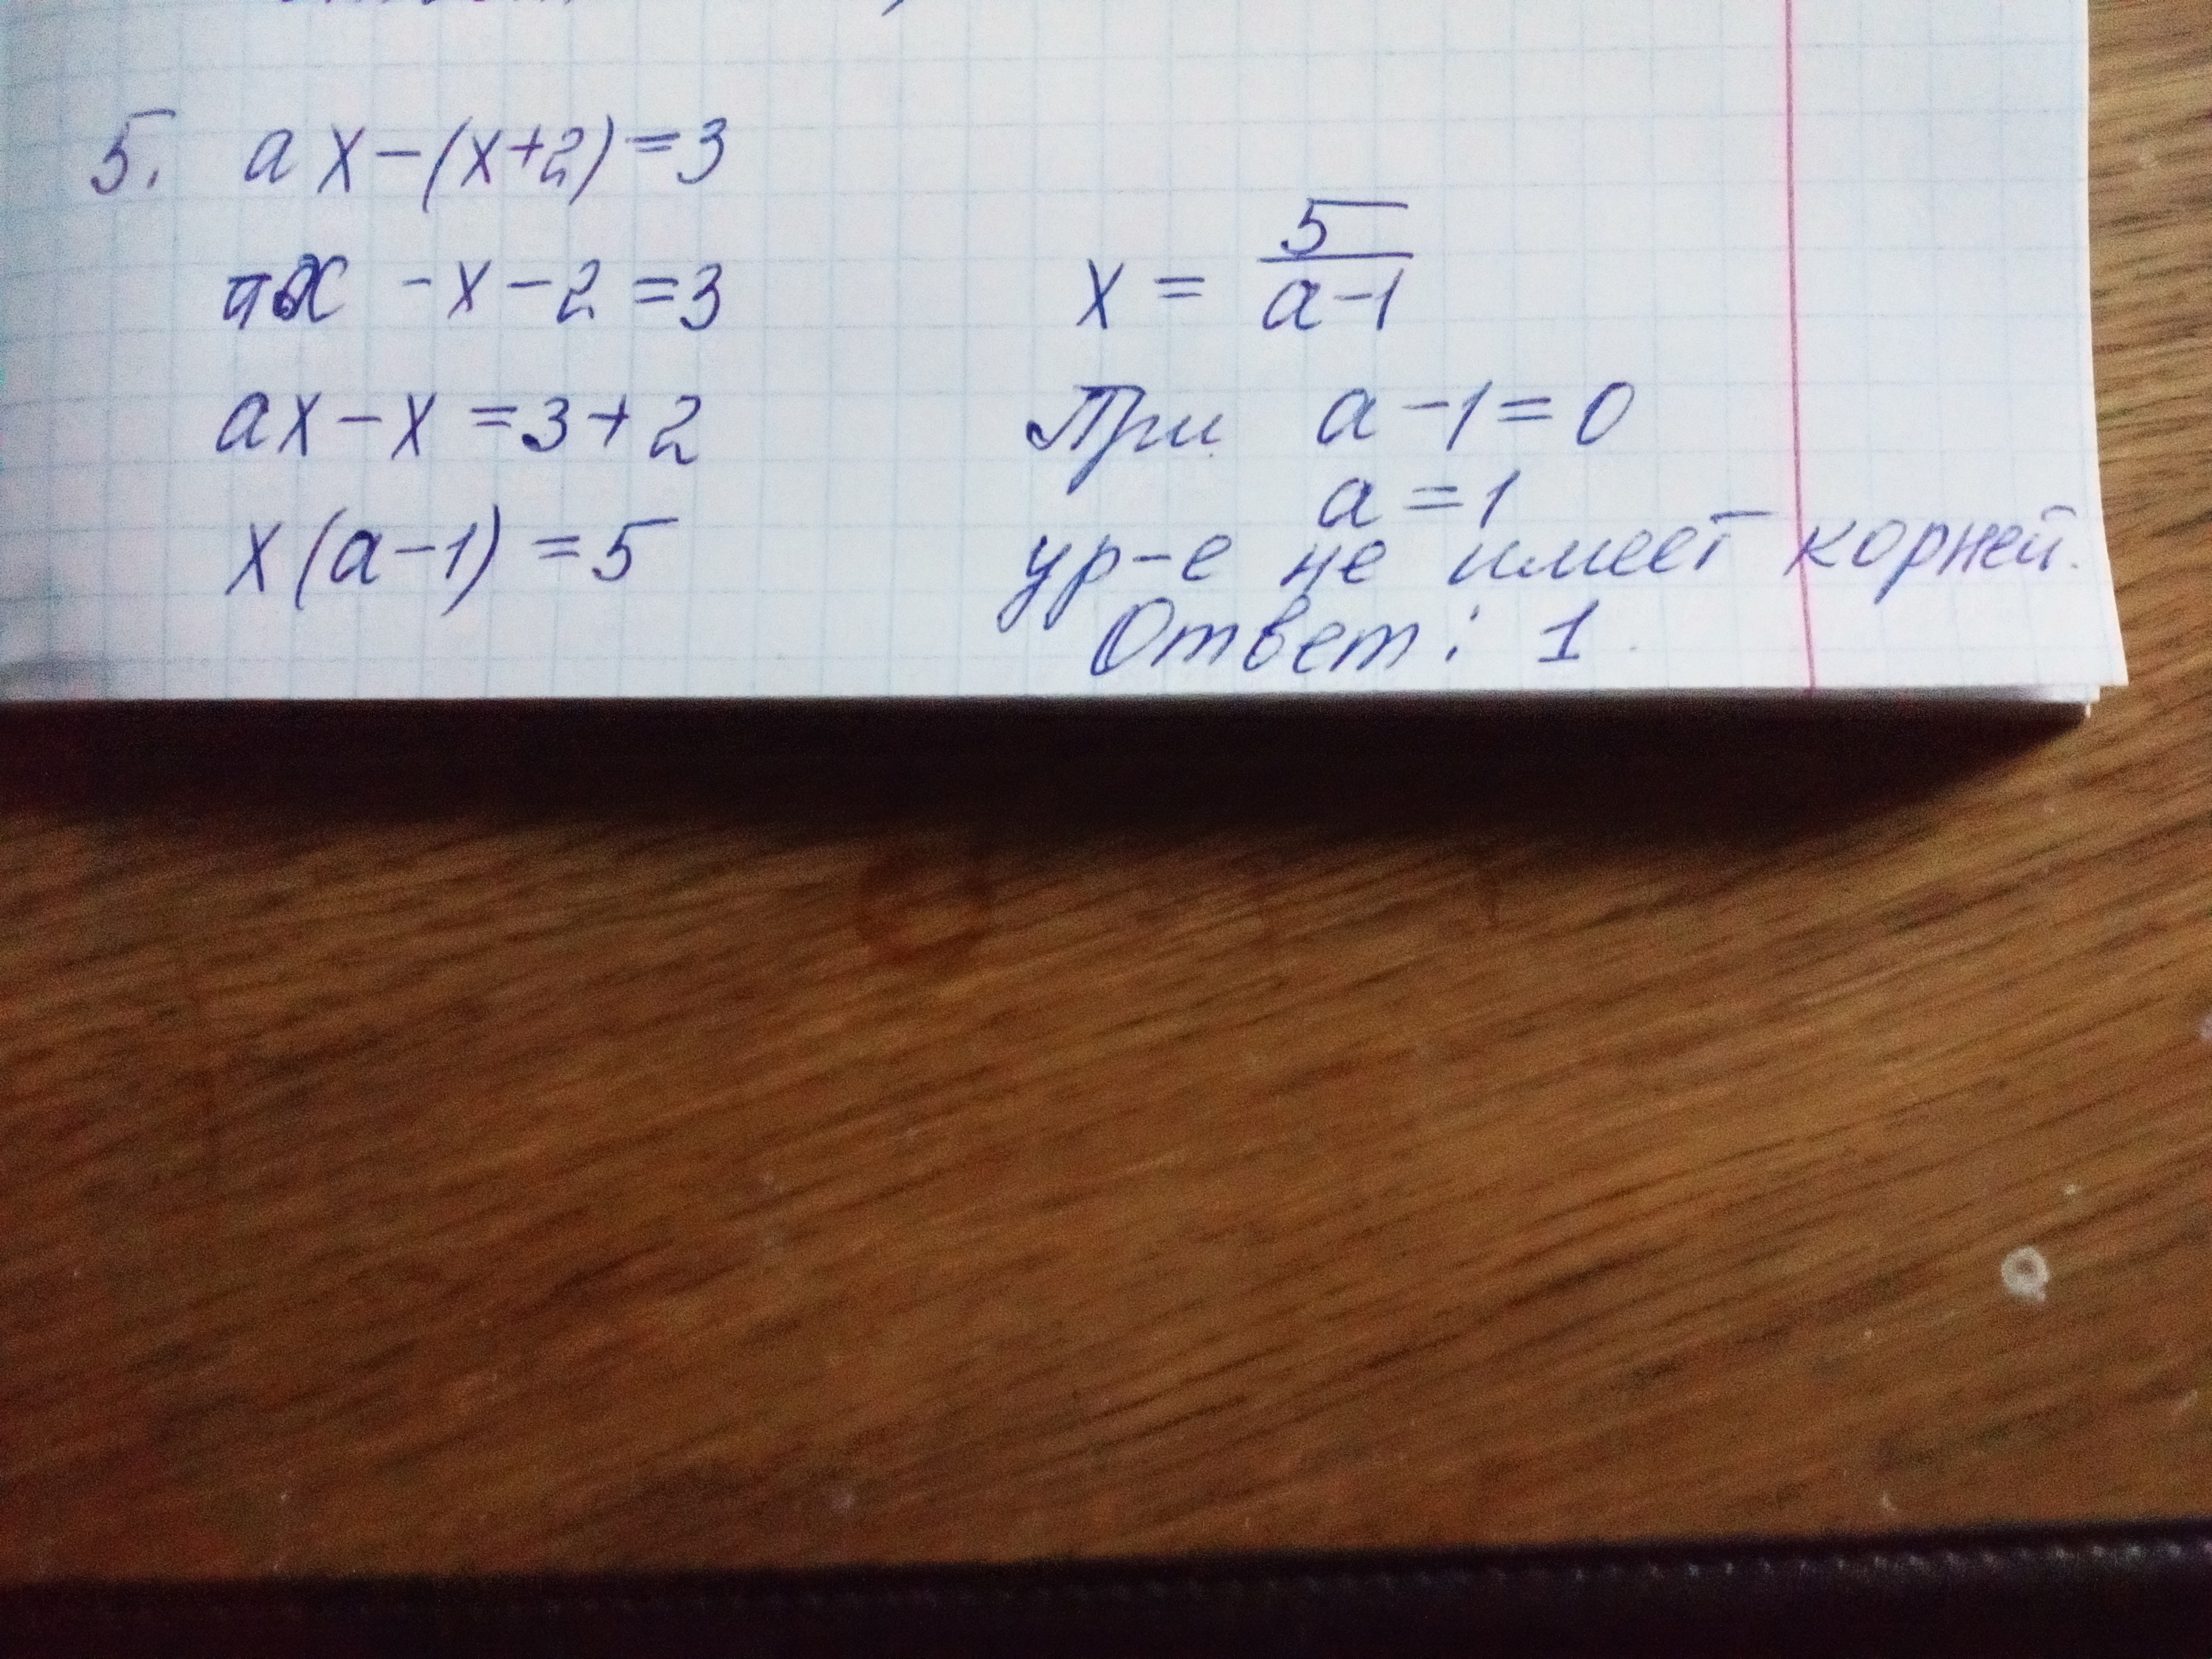 5. ax-(x+2)=3
ax -x-2=3
ax-x=3+2
x(a-1)=5
x = 5/(a-1)
При a-1=0
a=1
ур-е не имеет корней.
Ответ: 1.